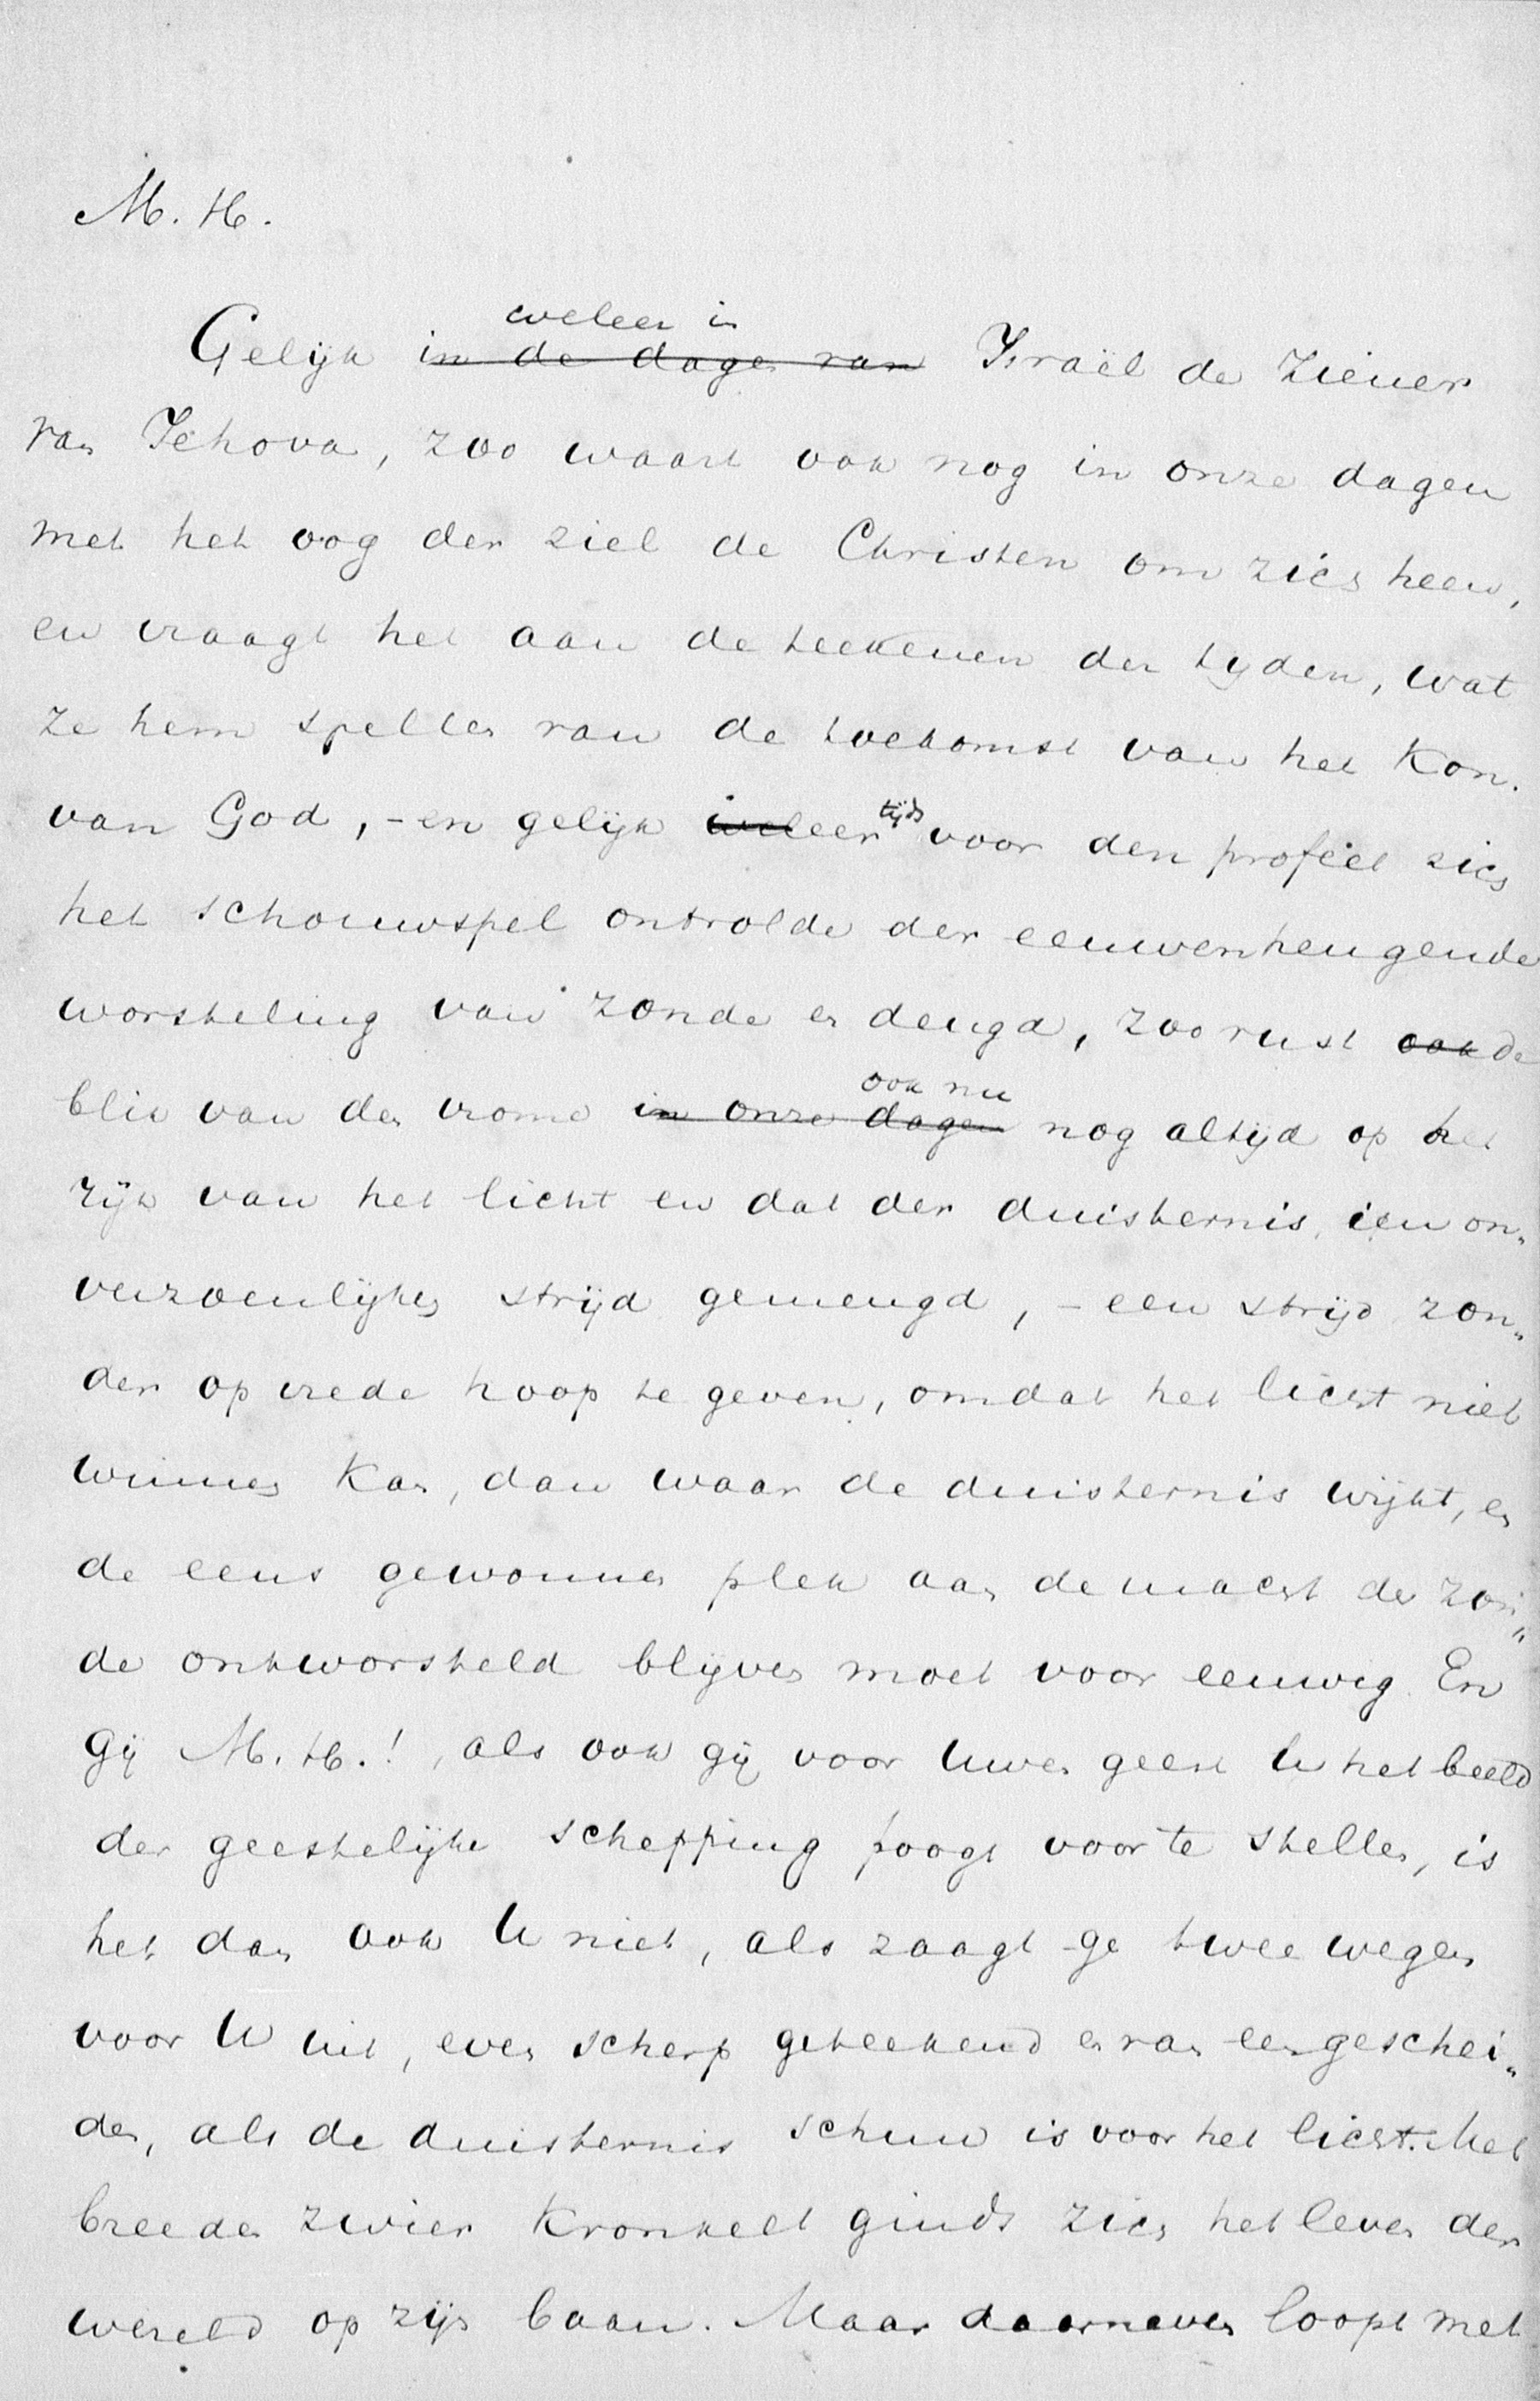 M. H.
weleer in
Gelijk in de dagen van Israël de Ziener
van Jehova, zoo waart ook nog in onze dagen
met het oog der ziel de Christen om zich heen,
en vraagt het aan de teekenen der tyden, wat
ze hem spellen van de toekomst van het Kon.
van God, - en gelijk weleer tijds voor den profeet zich
het schouwspel ontrolde der eeuwenheugende
worsteling van zonde en deugd, zoo rust ook de
ook nu
blik van den vrome in onze dagen nog altijd op het
rijk van het licht en dat der duisternis, in on„
verzoenlijken strijd gemengd, - een strijd zon„
der op vrede hoop te geven, omdat het licht niet
winnen kan, dan waar de duisternis wijkt, en
de eens gewonnen plek aan de macht der zon„
de ontworsteld blijven moet voor eeuwig. En
gij M. H.!, als ook gij voor Uwen geest U het beeld
der geestelijke schepping poogt voor te stellen, is
het dan ook U niet, als zaagt ge twee wegen
voor U uit, even scherp geteekend en van een geschei„
den, als de duisternis schuw is voor het licht. Met
breeden zwier kronkelt ginds zich het leven der
wereld op zijn baan. Maar daarneven loopt met